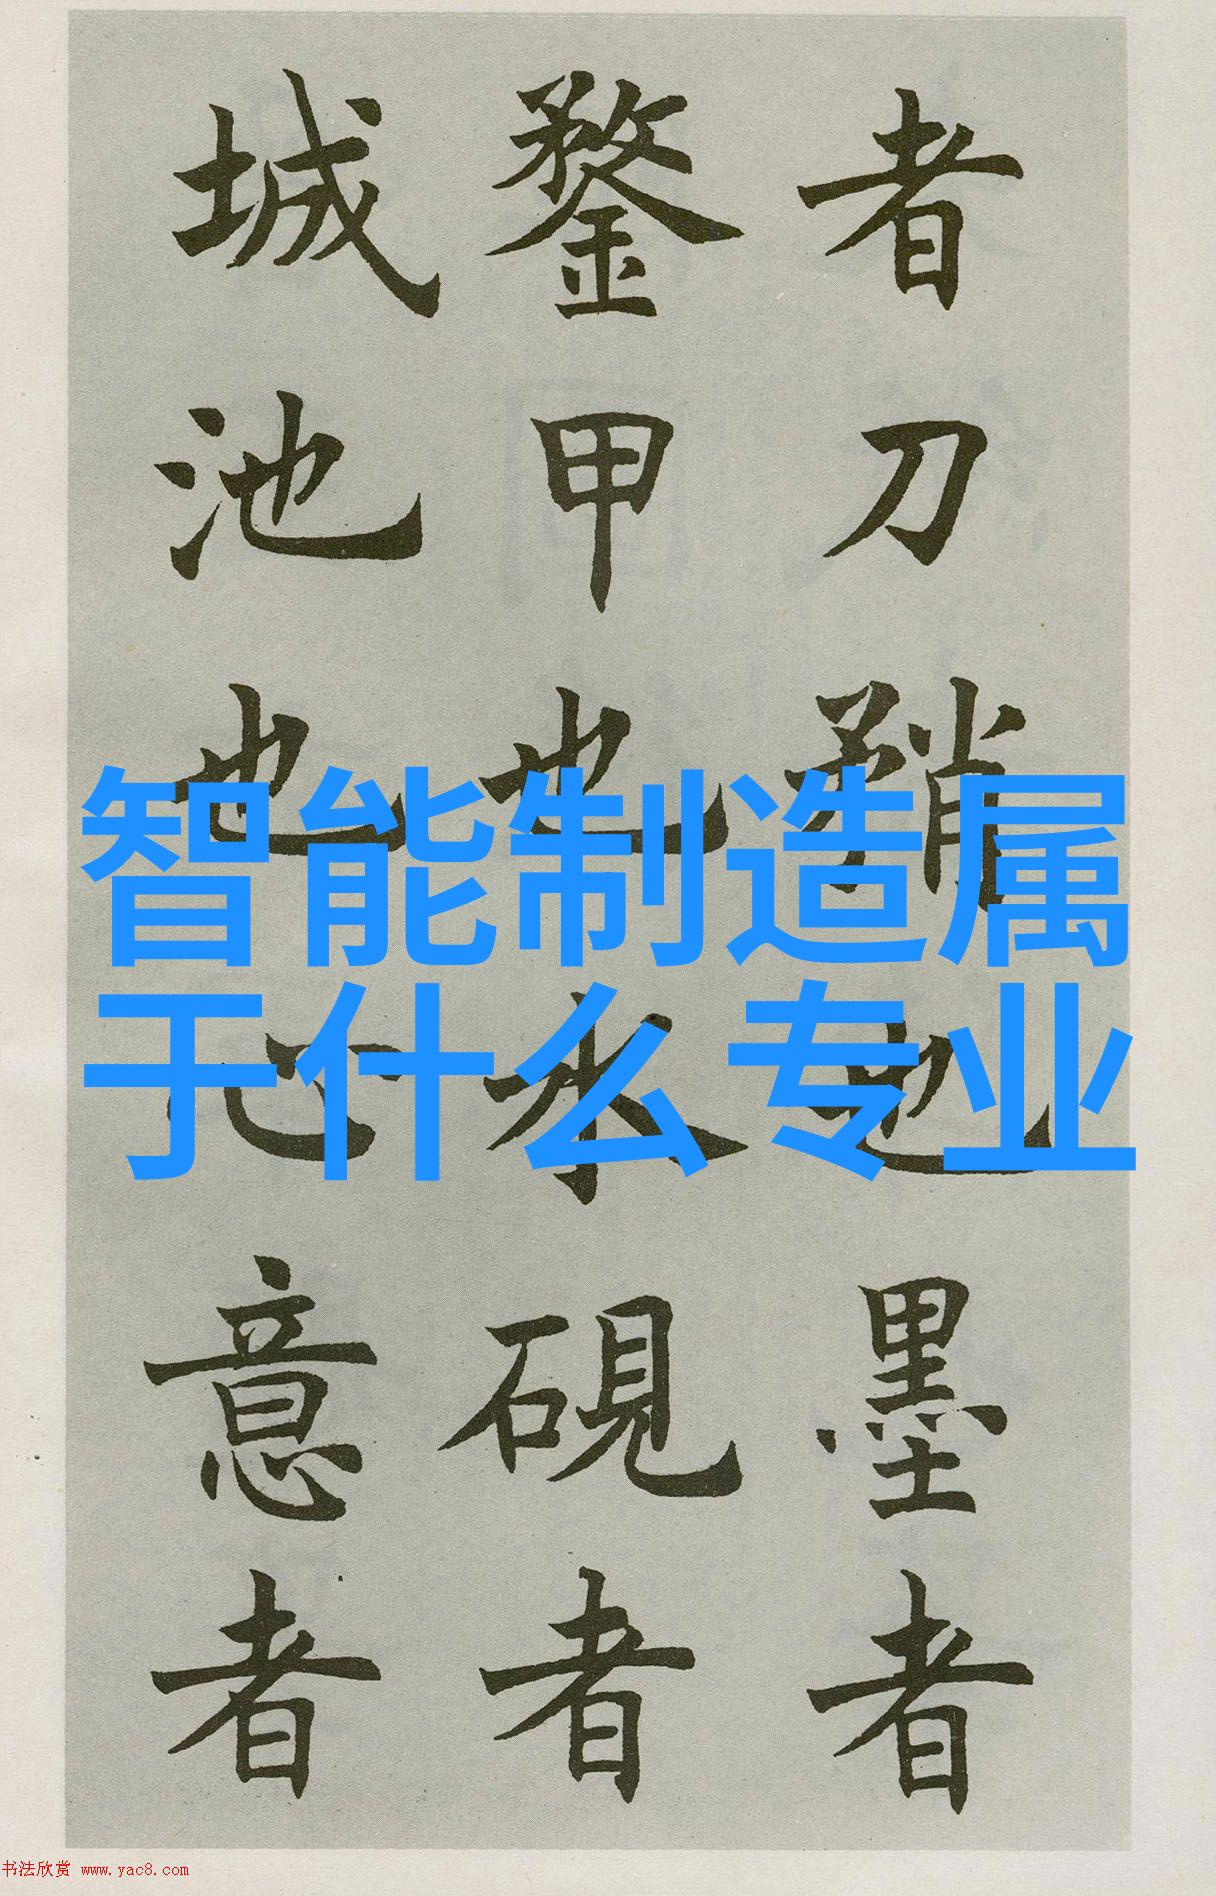 者刀矟也墨者
鍪甲也水硯者
城池也心意者
智能制造属
于什么专业
书法欣赏 www.yac8.com